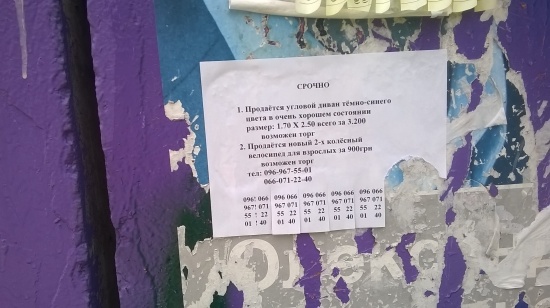 СРОЧНО
1. Продаётся угловой диван тёмно-синего
цвета в очень хорошем состоянии
размер: 1.70 Х 2.50 всего за 3.200
возможен торг
2. Продаётся новый 2-х колёсный
велосипед для взрослых за 900грн
возможен торг
тел: 096-967-55-01
066-071-22-40
096! 066 096 066 096 066 096 066 096 066
967! 071 967 071 967 071 967 071 967 071
55 ! 22 55 22 55 22 55 22 55 22
01 ! 40 01 40 01 40 01 40 01 40